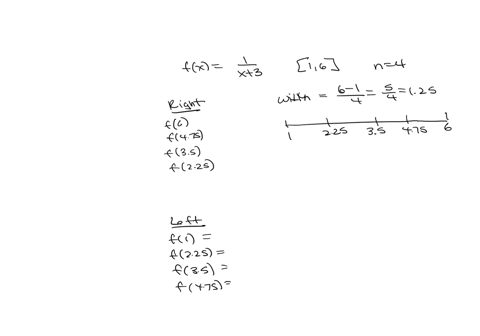 f(x) = 1/(x+3) [1,6] n=4
width = (6-1)/4 = 5/4 = 1.25
Right
f(6)
f(4.75)
f(3.5)
f(2.25)
1 2.25 3.5 4.75 6
Left
f(1) =
f(2.25) =
f(3.5) =
f(4.75) =